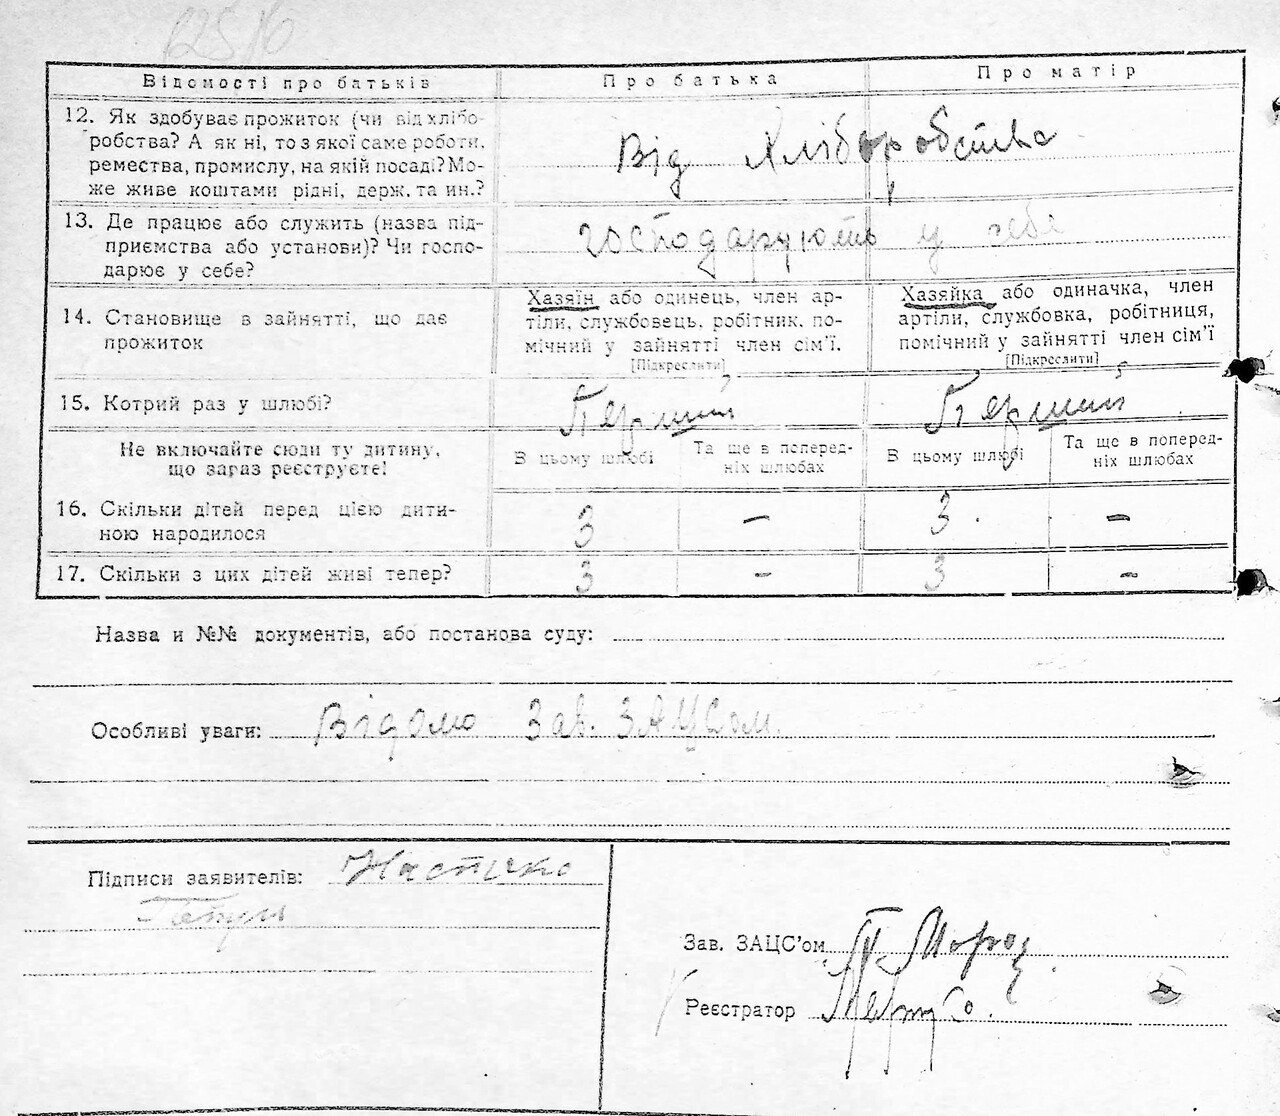 Відомості про батьків Про батька Про матір
12. Як здобуває прожиток (чи від хлібо-
робства? А як ні, то з якої саме роботи,
ремества, промислу, на якій посаді? Мо-
же живе коштами рідні, держ. та ин.?
Від хліборобства
13. Де працює або служить (назва під-
приємства або установи)? Чи госпо-
дарює у себе?
господарують у себе
14. Становище в зайнятті, що дає
прожиток
Хазяїн або одинець, член ар-
тіли, службовець, робітник, по-
мічний у зайнятті член сім'ї.
[Підкреслити]
Хазяйка або одиначка, член
артіли, службовка, робітниця,
помічний у зайнятті член сім'ї
[Підкреслити]
15. Котрий раз у шлюбі? Перший Перший
Не включайте сюди ту дитину,
що зараз реєструєте!
В цьому шлюбі
Та ще в поперед-
ніх шлюбах
В цьому шлюбі
Та ще в поперед-
ніх шлюбах
16. Скільки дітей перед цією дити-
ною народилося
3 – 3 –
17. Скільки з цих дітей живі тепер? 3 – 3 –
Назва и №№ документів, або постанова суду:
Особливі уваги: Відомо Зав. ЗАЦСом.
Підписи заявителів:
Зав. ЗАЦС'ом П. Мороз
Реєстратор